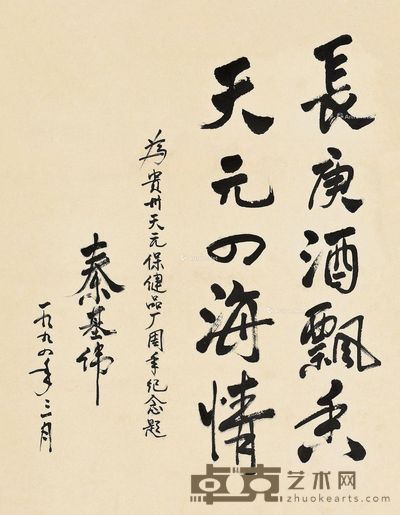 長庚酒飘香
天元四海情
為贵州天元保健品厂周年纪念题
秦基伟
一九九四年三月
卓克艺术网
zhuokearts.com